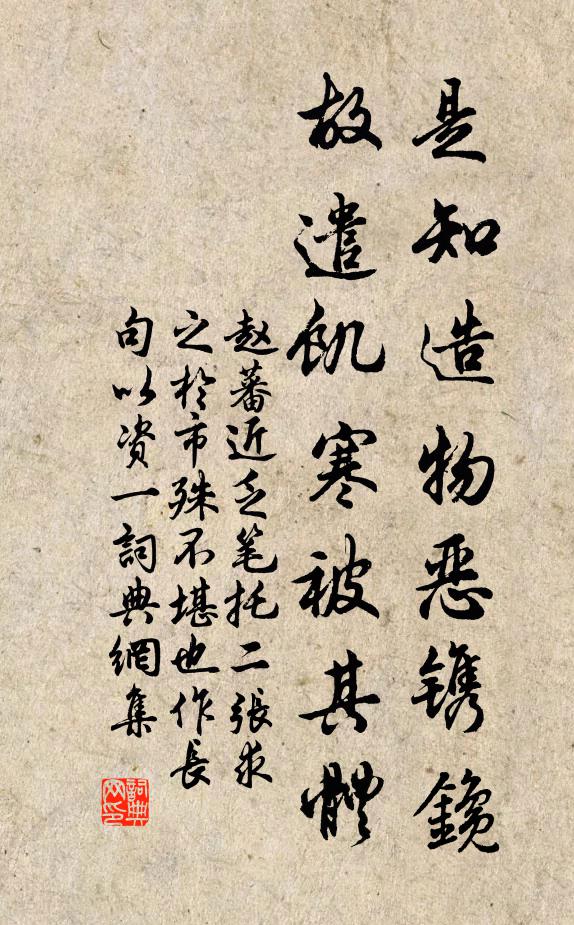 是知造物恶镌鑱
故遣飢寒被其體
赵蕃近乏笔托二張求
之於市殊不堪也作長
句以资一詞典網集
詞典
网印